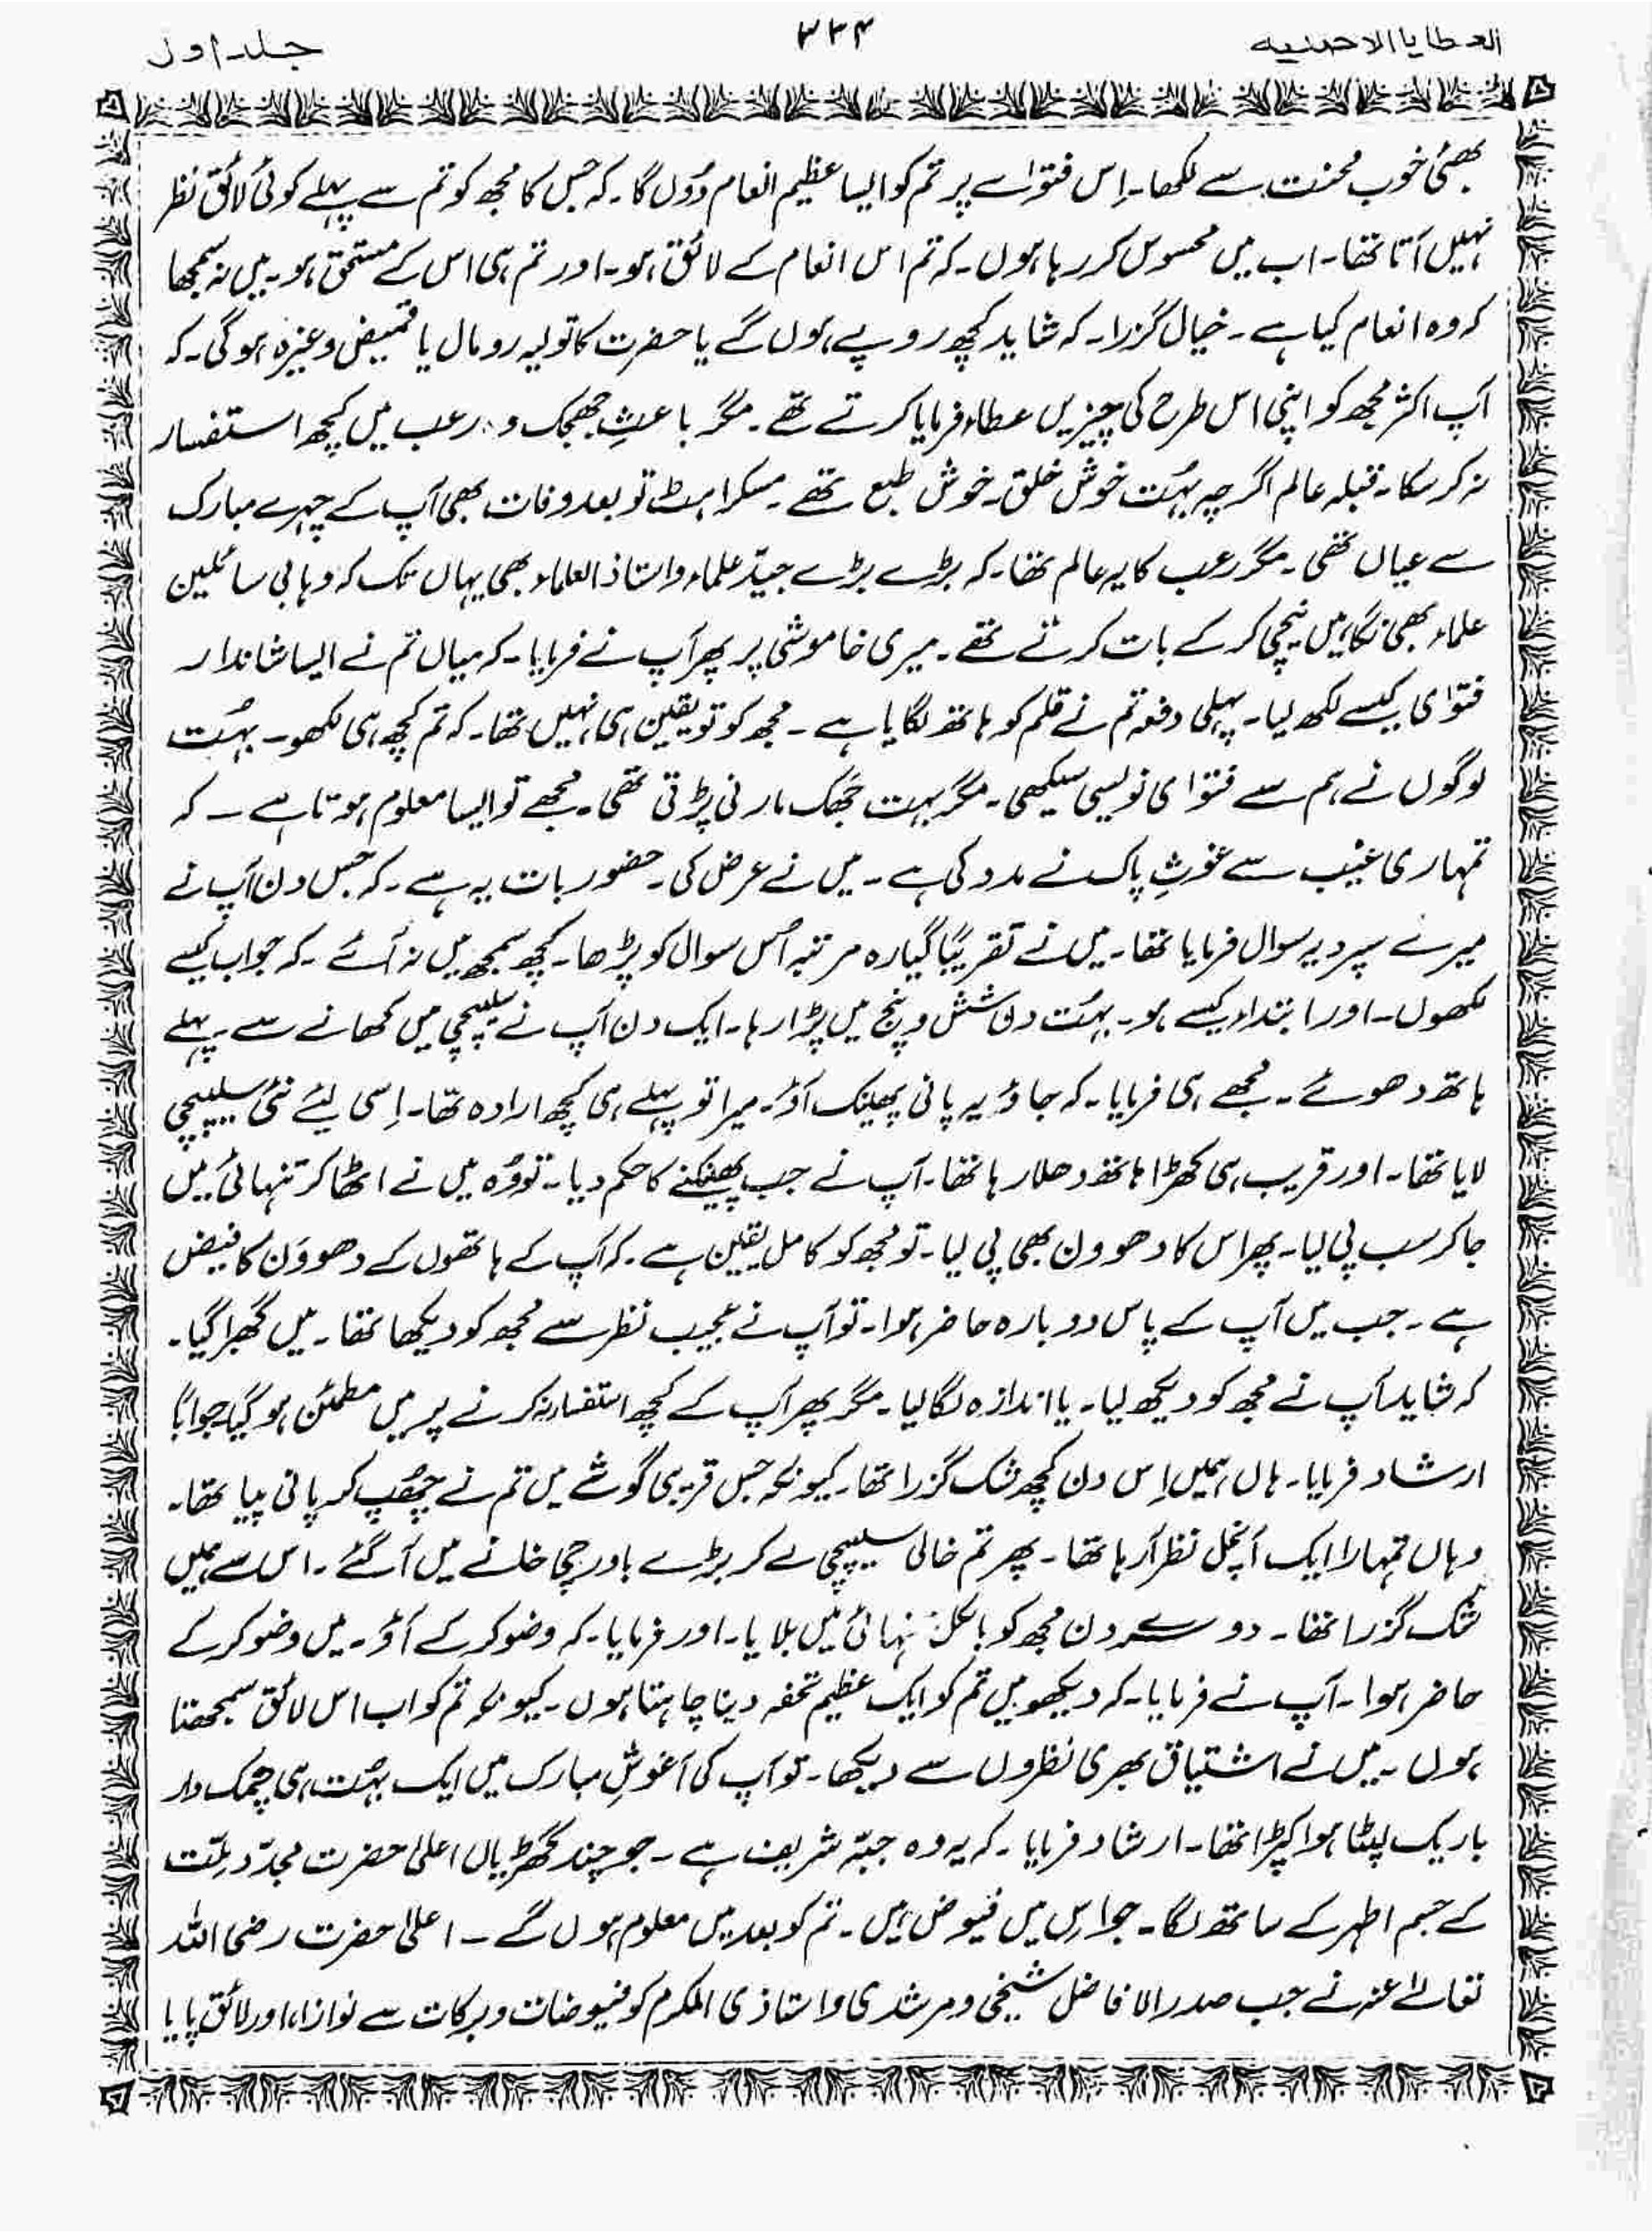 العطایا الاحمدیہ
۳۳۴
جلد اول
بھئی خوب محنت سے لکھا۔ اِس فتوٰے پر تم کو ایسا عظیم انعام دُوں گا۔ کہ جس کا مجھ کو تم سے پہلے کوئی لائق نظر
نہیں آتا تھا۔ اب میں محسوس کر رہا ہوں۔ کہ تم اس انعام کے لائق ہو۔ اور تم ہی اس کے مستحق ہو۔ میں نہ سمجھا
کہ وہ انعام کیا ہے۔ خیال گزرا۔ کہ شاید کچھ روپے ہوں گے یا حضرت کا تولیہ رومال یا قمیض وغیرہ ہو گی۔ کہ
آپ اکثر مجھ کو اپنی اس طرح کی چیزیں عطاء فرمایا کرتے تھے۔ مگر باعثِ جھجک و رعب میں کچھ استفسار
نہ کر سکا۔ قبلہ عالم اگرچہ بہُت خوش خلق۔ خوش طبع تھے۔ مسکراہٹ تو بعد وفات بھی آپ کے چہرے مبارک
سے عیاں تھی۔ مگر رعب کا یہ عالم تھا۔ کہ بڑے بڑے جیّد علماء و استاذ العلماء بھی یہاں تک کہ وہابی سائلین
علماء بھی نگاہیں نیچی کر کے بات کرتے تھے۔ میری خاموشی پر پھر آپ نے فرمایا۔ کہ میاں تم نے ایسا شاندار
فتوٰی کیسے لکھ لیا۔ پہلی دفعہ تم نے قلم کو ہاتھ لگایا ہے۔ مجھ کو تو یقین ہی نہیں تھا۔ کہ تم کچھ ہی لکھو۔ بہُت
لوگوں نے ہم سے فتوٰی نویسی سیکھی۔ مگر بہت جَھک مارنی پڑتی تھی۔ مجھے تو ایسا معلوم ہوتا ہے۔ کہ
تمہاری غیب سے غوثِ پاک نے مدد کی ہے۔ میں نے عرض کی۔ حضور بات یہ ہے۔ کہ جس دن آپ نے
میرے سپرد یہ سوال فرمایا تھا۔ میں نے تقریبًا گیارہ مرتبہ اُس سوال کو پڑھا۔ کچھ سمجھ میں نہ آئے۔ کہ جواب کیسے
لکھوں۔ اور ابتداء کیسے ہو۔ بہُت دن شش و پنج میں پڑا رہا۔ ایک دن آپ نے سلیپچی میں کھانے سے پہلے
ہاتھ دھوئے۔ مجھے ہی فرمایا۔ کہ جاؤ یہ پانی پھینک آؤ۔ میرا تو پہلے ہی کچھ ارادہ تھا۔ اِسی لیئے نئی سلیپچی
لایا تھا۔ اور قریب ہی کھڑا ہاتھ دھلا رہا تھا۔ آپ نے جب پھینکنے کا حکم دیا۔ تو وُہ میں نے اٹھا کر تنہائی میں
جا کر سب پی لیا۔ پھر اس کا دھوون بھی پی لیا۔ تو مجھ کو کامل یقین ہے۔ کہ آپ کے ہاتھوں کے دھووَن کا فیض
ہے۔ جب میں آپ کے پاس دوبارہ حاضر ہوا۔ تو آپ نے عجیب نظر سے مجھ کو دیکھا تھا۔ میں گھبرا گیا۔
کہ شاید آپ نے مجھ کو دیکھ لیا۔ یا اندازہ لگا لیا۔ مگر پھر آپ کے کچھ استفسار نہ کرنے پر میں مطمئن ہو گیا۔ جوابًا
ارشاد فرمایا۔ ہاں ہمیں اِس دن کچھ شک گزرا تھا۔ کیونکہ جس قریبی گوشے میں تم نے چُھپ کر پانی پیا تھا۔
وہاں تمہارا ایک آنچل نظر آ رہا تھا۔ پھر تم خالی سلیپچی لے کر بڑے باورچی خانے میں آ گئے۔ اس سے ہمیں
شک گزرا تھا۔ دوسرے دن مجھ کو بالکل تنہائی میں بلایا۔ اور فرمایا۔ کہ وضو کر کے آؤ۔ میں وضو کر کے
حاضر ہوا۔ آپ نے فرمایا۔ کہ دیکھو میں تم کو ایک عظیم تحفہ دینا چاہتا ہوں۔ کیونکہ تم کو اب اس لائق سمجھتا
ہوں۔ میں نے اشتیاق بھری نظروں سے دیکھا۔ تو آپ کی آغوشِ مبارک میں ایک بہُت ہی چمک دار
باریک لپٹا ہوا کپڑا تھا۔ ارشاد فرمایا۔ کہ یہ وہ جبّہ شریف ہے۔ جو چند گھڑیاں اعلیٰ حضرت مجدّد ملّت
کے جسم اطہر کے ساتھ لگا۔ جو اِس میں فیوض ہیں۔ تم کو بعد میں معلوم ہوں گے۔ اعلیٰ حضرت رضی اللہ
تعالےٰ عنہ نے جب صدر الافاضل شیخی و مرشدی و استاذی المکرم کو فیوضات و برکات سے نوازا، اور لائق پایا